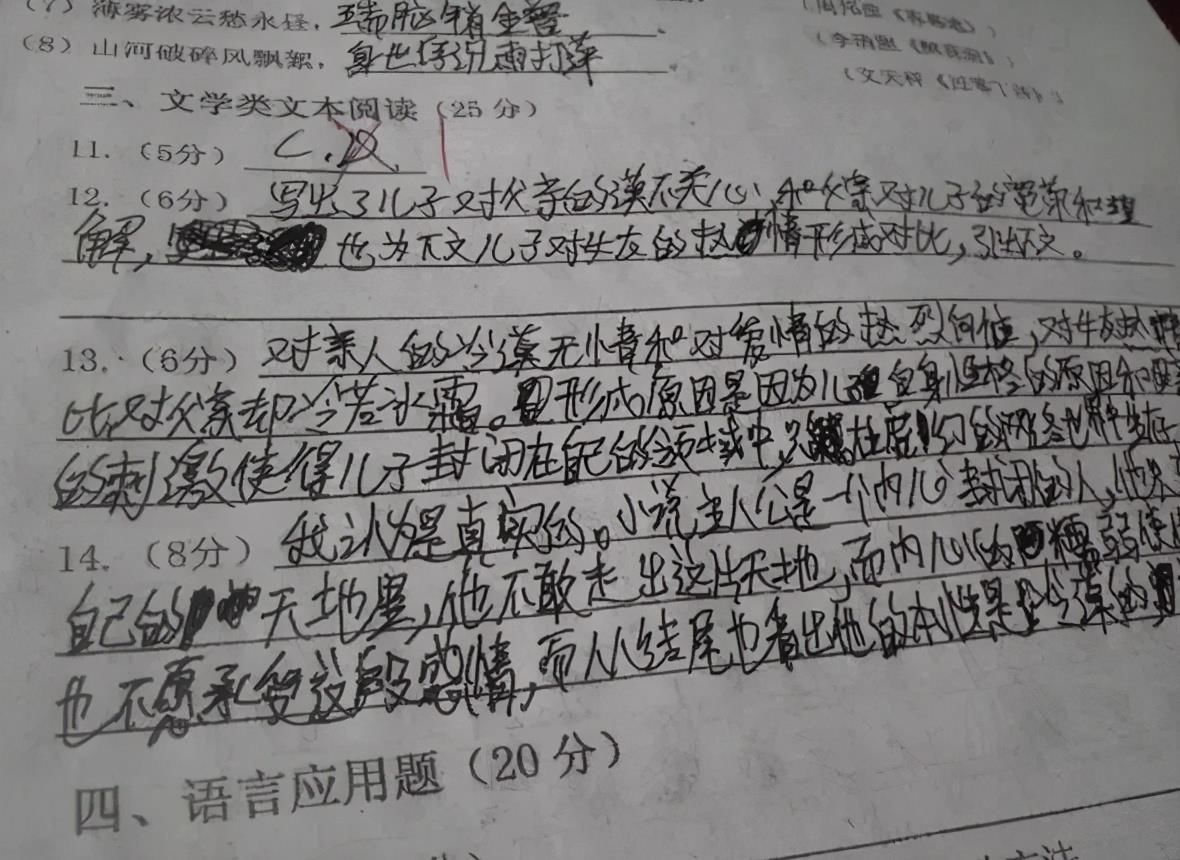 (7) 薄雾浓云愁永昼，瑞脑销金兽。
(8) 山河破碎风飘絮，身世浮沉雨打萍。
(李清照《醉花阴》)
(文天祥《过零丁洋》)
三、文学类文本阅读（25分）
11.（5分）C.D
12.（6分）写出了儿子对父亲的漠不关心，和父亲对儿子的宽荣和理
解，也为下文儿子对女友的热情形成对比，引出下文。
13.（6分）对亲人的冷漠无情和对爱情的热烈向往，对女友热情
比，对父亲却冷若冰霜。形成原因是因为儿子自身性格的原因和
的刺激使得儿子封闭在自己的领域中，只在虚幻的网络世界中
14.（8分）我认为是真实的。小说主人公是一个内心封闭的人，他
自己的天地里，他不敢走出这片天地，而内心的懦弱使
也不愿承受这段感情，而从结尾也看出他的本性是冷漠的
四、语言应用题（20分）